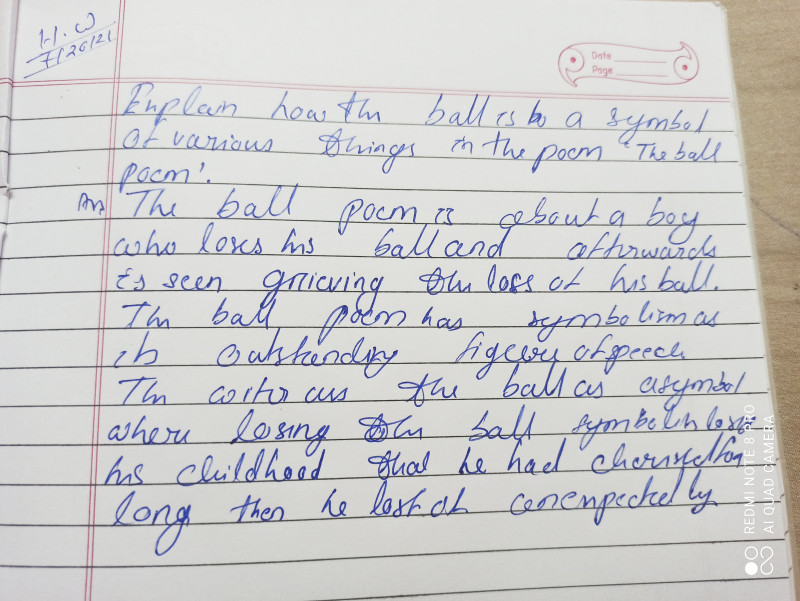 H.W
7/26/21
Date
Page
Explain how the ball is to a symbol
of various things in the poem "The ball
poem'.
Ans The ball poem is about a boy
who loses his ball and afterwards
is seen grieving the loss of his ball.
The ball poem has symbolism as
its outstanding figure of speech
The writer uses the ball as a symbol
where losing the ball
his childhood that he had cherished for
long then he lost it unexpectedly
REDMI NOTE 8 PRO
AI QUAD CAMERA